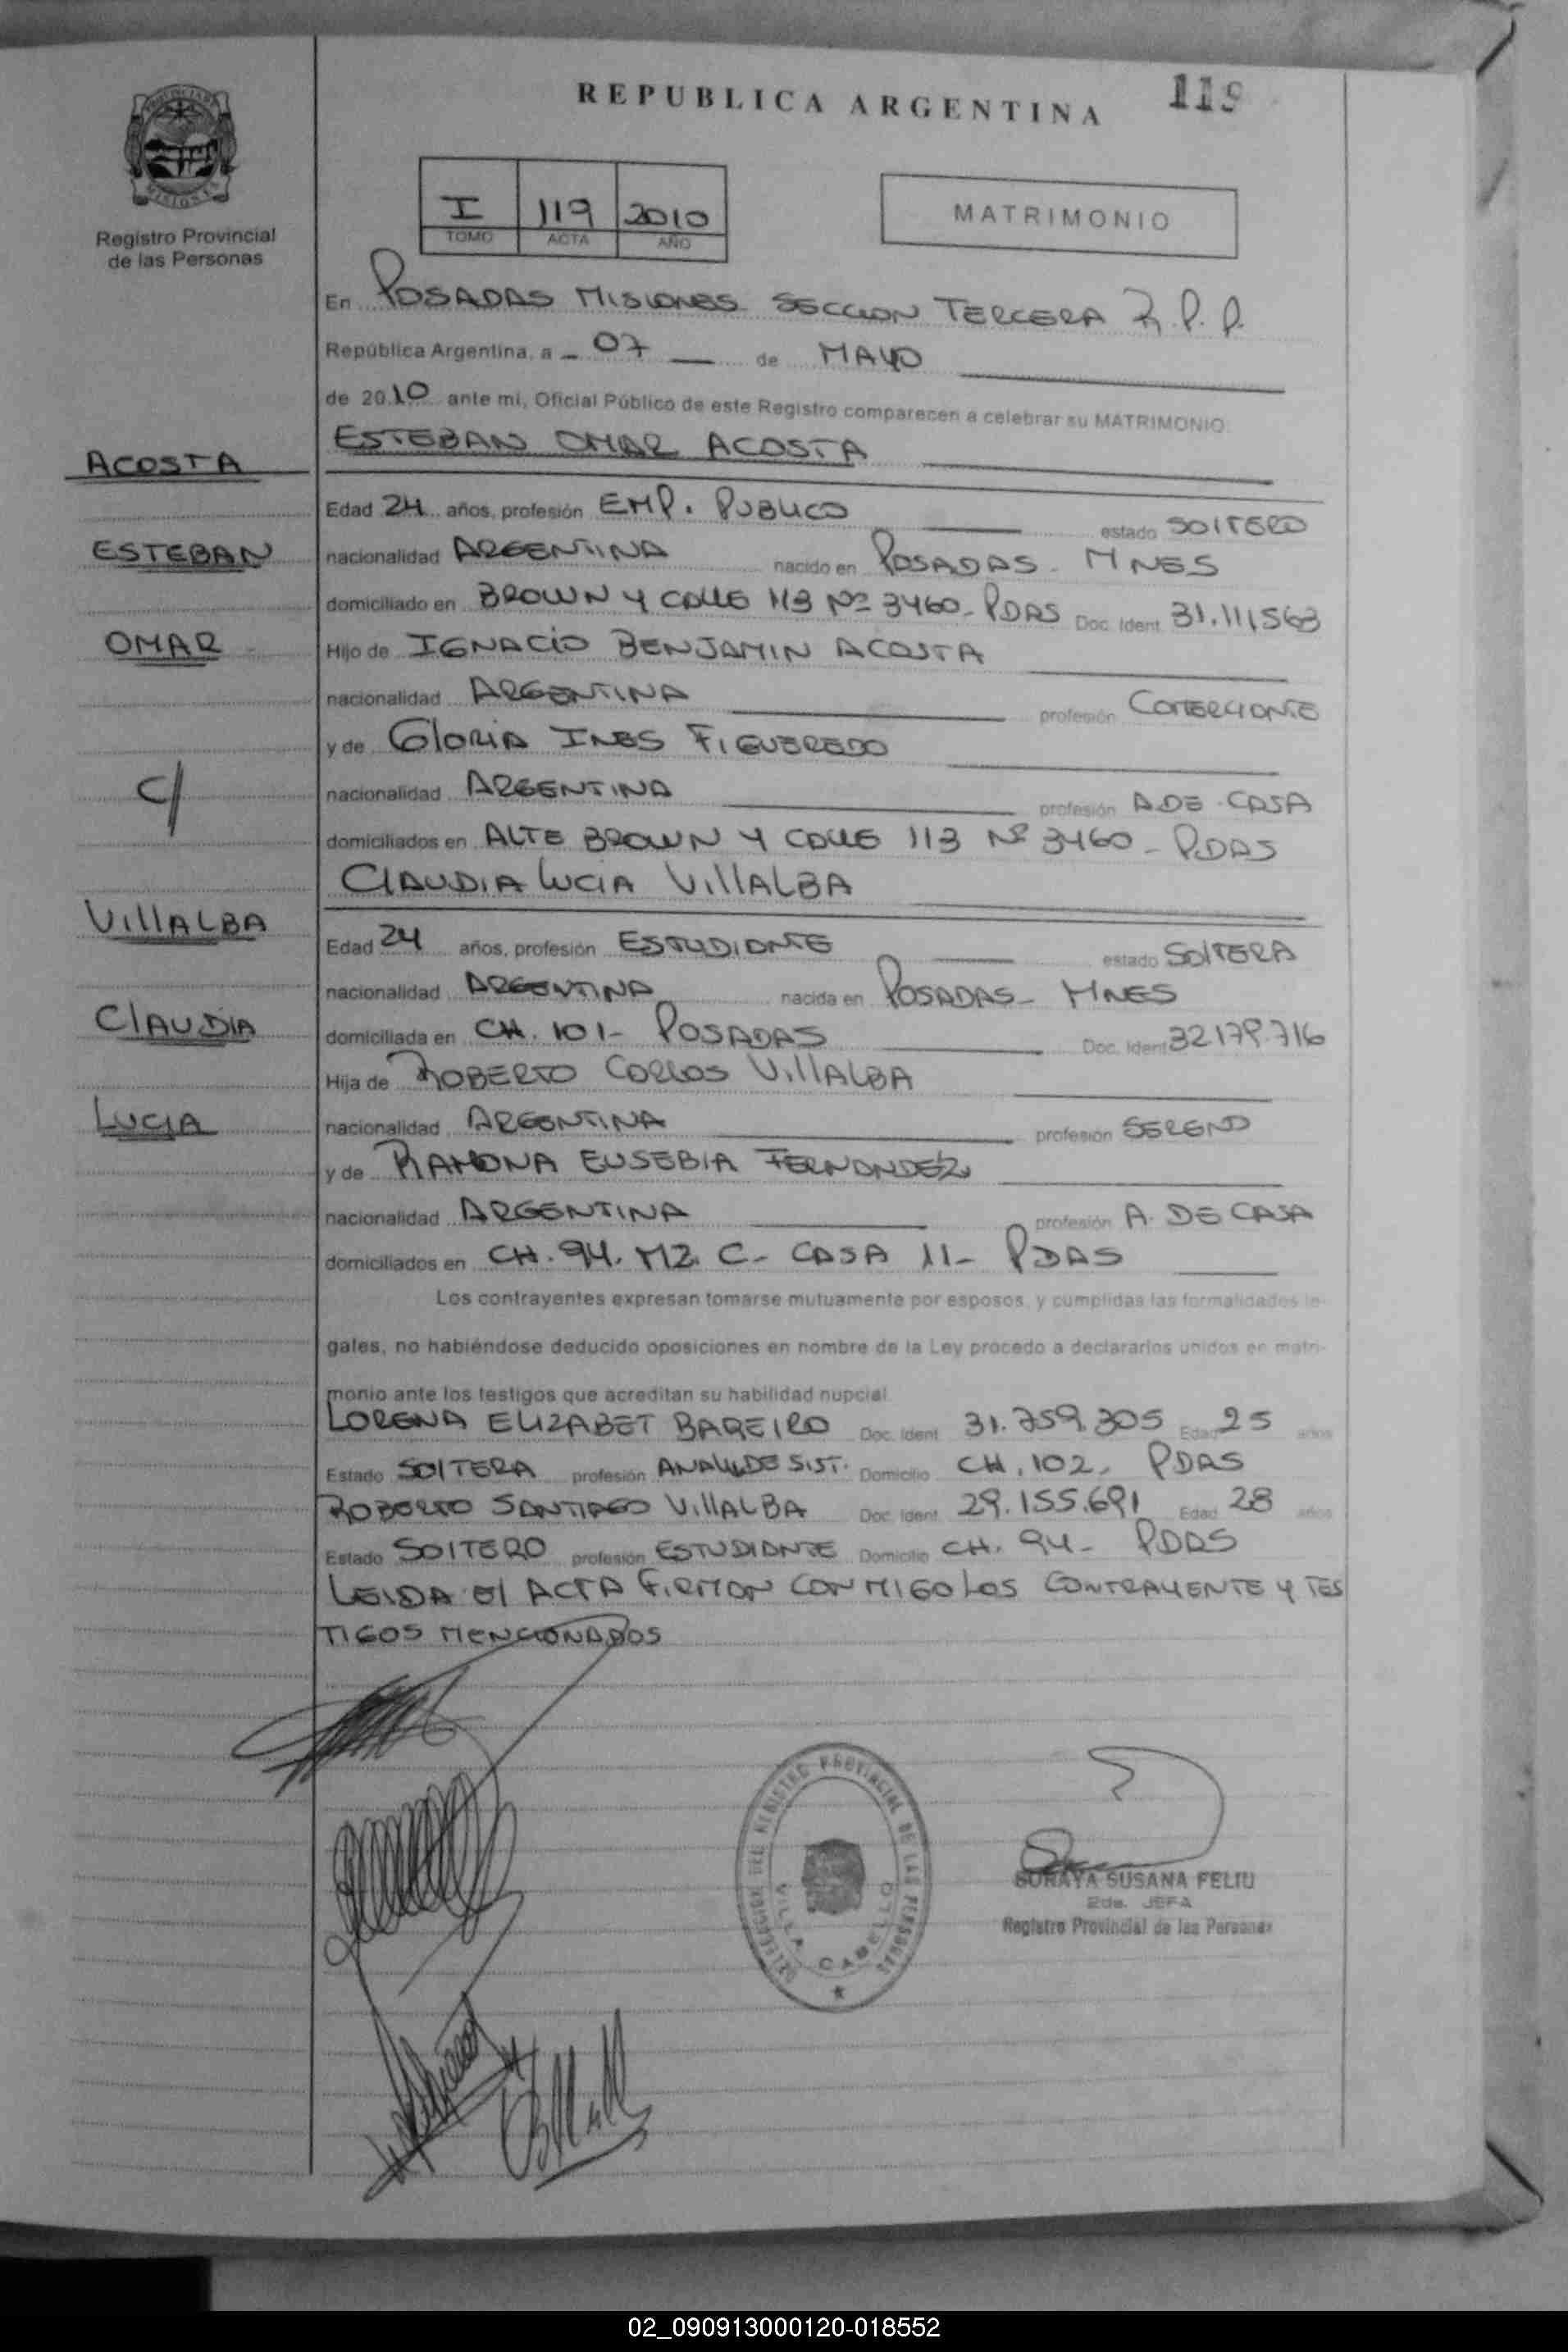 REPUBLICA ARGENTINA
119
PROVINCIA DE
MISIONES
Registro Provincial
de las Personas
I 119 2010
TOMO ACTA AÑO
MATRIMONIO
En POSADAS MISIONES SECCION TERCERA R.P.P.
República Argentina, a 07 de MAYO
de 2010 ante mi, Oficial Público de este Registro comparecen a celebrar su MATRIMONIO:
ESTEBAN OMAR ACOSTA
ACOSTA
Edad 24 años, profesión EMP. PUBLICO estado SOLTERO
ESTEBAN
nacionalidad ARGENTINA nacido en POSADAS - MNES
domiciliado en BROWN Y CALLE 113 Nº 3460 - PDAS Doc. Ident. 31.111.563
OMAR
Hijo de IGNACIO BENJAMIN ACOSTA
nacionalidad ARGENTINA profesión COMERCIANTE
y de GLORIA INES FIGUEREDO
C/
nacionalidad ARGENTINA profesión A DE CASA
domiciliados en ALTE BROWN Y CALLE 113 Nº 3460 - PDAS
CLAUDIA LUCIA VILLALBA
VILLALBA
Edad 24 años, profesión ESTUDIANTE estado SOLTERA
nacionalidad ARGENTINA nacida en POSADAS - MNES
CLAUDIA
domiciliada en CH. 101 - POSADAS Doc. Ident. 32.179.716
Hija de ROBERTO CARLOS VILLALBA
LUCIA
nacionalidad ARGENTINA profesión SERENO
y de RAMONA EUSEBIA FERNANDEZ
nacionalidad ARGENTINA profesión A. DE CASA
domiciliados en CH. 94. MZ. C - CASA 11 - PDAS
Los contrayentes expresan tomarse mutuamente por esposos, y cumplidas las formalidades le-
gales, no habiéndose deducido oposiciones en nombre de la Ley procedo a declararlos unidos en matri-
monio ante los testigos que acreditan su habilidad nupcial.
LORENA ELIZABET BAREIRO Doc. Ident. 31.759.305 Edad 25 años
Estado SOLTERA profesión ANAL. DE SIST. Domicilio CH. 102, PDAS
ROBERTO SANTIAGO VILLALBA Doc. Ident. 29.155.691 Edad 28 años
Estado SOLTERO profesión ESTUDIANTE Domicilio CH. 94 - PDAS
LEIDA EL ACTA FIRMAN CONMIGO LOS CONTRAYENTE Y TES
TIGOS MENCIONADOS
DELEGACION DEL REGISTRO PROVINCIAL DE LAS PERSONAS
VILLA CABELLO
SORAYA SUSANA FELIU
2da. JEFA
Registro Provincial de las Personas
02_090913000120-018552